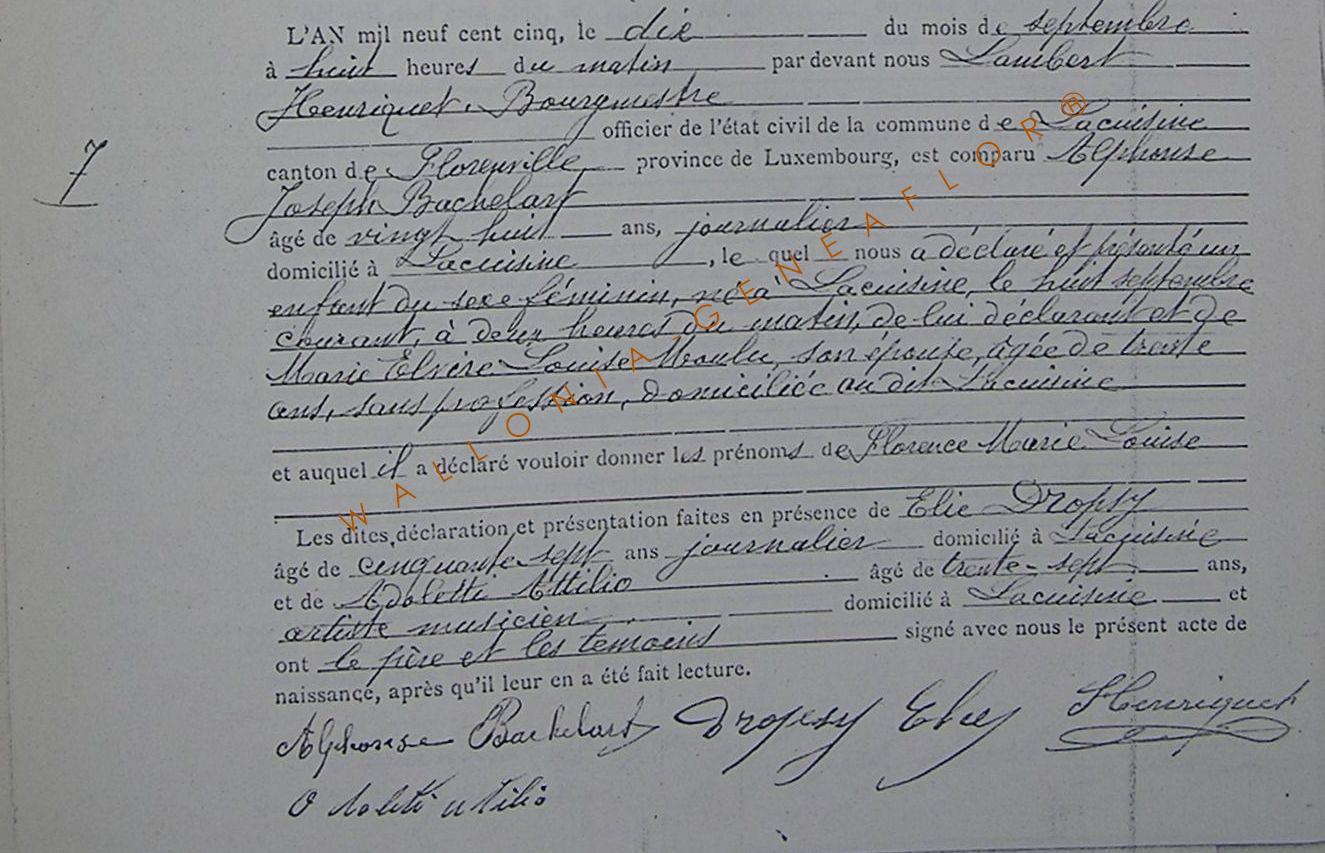 L'AN mil neuf cent cinq, le dix du mois de septembre
à huit heures du matin par devant nous Lambert
Henriquet, Bourgmestre
officier de l'état civil de la commune de Lacuisine
canton de Florenville, province de Luxembourg, est comparu Alphonse
Joseph Bachelart
7
âgé de vingt huit ans, journalier
domicilié à Lacuisine, le quel nous a déclaré et présenté un
enfant du sexe féminin, né à Lacuisine, le huit septembre
courant, à deux heures du matin, de lui déclarant et de
Marie Elvire Louise Moulu, son épouse, âgée de trente
ans, sans profession, domiciliée au dit Lacuisine
et auquel il a déclaré vouloir donner les prénoms de Florence Marie Louise
Les dites déclaration et présentation faites en présence de Elie Dropsy
âgé de cinquante-sept ans journalier domicilié à Lacuisine
et de Adoletti Attilio âgé de trente-sept ans,
artiste musicien domicilié à Lacuisine et
ont le père et les temoins signé avec nous le présent acte de
naissance, après qu'il leur en a été fait lecture.
Alphonse Bachelart Dropsy Elie Henriquet
WALLONIA GENEAFLOR®